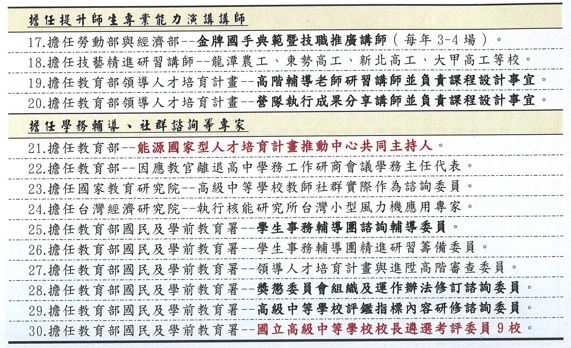 擔任提升師生專業能力演講講師
17.擔任勞動部與經濟部--金牌國手典範暨技職推廣講師(每年3-4場)。
18.擔任技藝精進研習講師--龍潭農工、東勢高工、新北高工、大甲高工等校。
19.擔任教育部領導人才培育計畫--高階輔導老師研習講師並負責課程設計事宜。
20.擔任教育部領導人才培育計畫--營隊執行成果分享講師並負責課程設計事宜。
擔任學務輔導、社群諮詢等專家
21.擔任教育部--能源國家型人才培育計畫推動中心共同主持人。
22.擔任教育部--因應教官離退高中學務工作研商會議學務主任代表。
23.擔任國家教育研究院--高級中等學校教師社群實際作為諮詢委員。
24.擔任台灣經濟研究院--執行核能研究所台灣小型風力機應用專家。
25.擔任教育部國民及學前教育署--學生事務輔導團諮詢輔導委員。
26.擔任教育部國民及學前教育署--學生事務輔導團精進研習籌備委員。
27.擔任教育部國民及學前教育署--領導人才培育計畫與進陞高階審查委員。
28.擔任教育部國民及學前教育署--獎懲委員會組織及運作辦法修訂諮詢委員。
29.擔任教育部國民及學前教育署--高級中等學校評鑑指標內容研修諮詢委員。
30.擔任教育部國民及學前教育署--國立高級中等學校校長遴選考評委員9校。